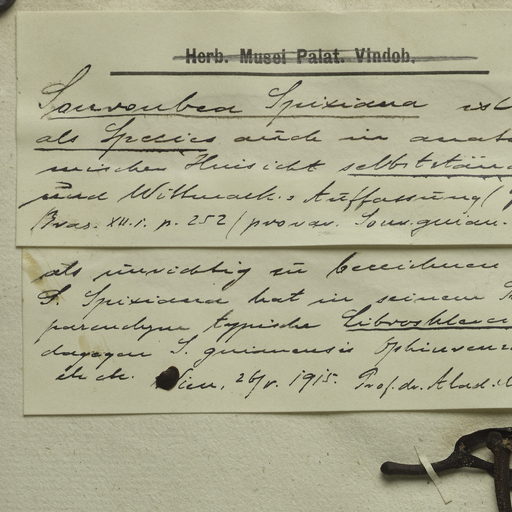 Herb. Musei Palat. Vindob.
Souroubea Spixiana ist
als Species auch in anato
mischer Hinsicht selbstständ
und Wittmack's Auffassung (
Bras. XII.1. p. 252) pro var. Sour. guian.
als unrichtig zu bezeichnen
S. Spixiana hat in seinem
parenchym typische Fibrosklerei
dagegen S. guianensis
etc. etc. Wien, 26/V. 1915. Prof. dr. Alad.